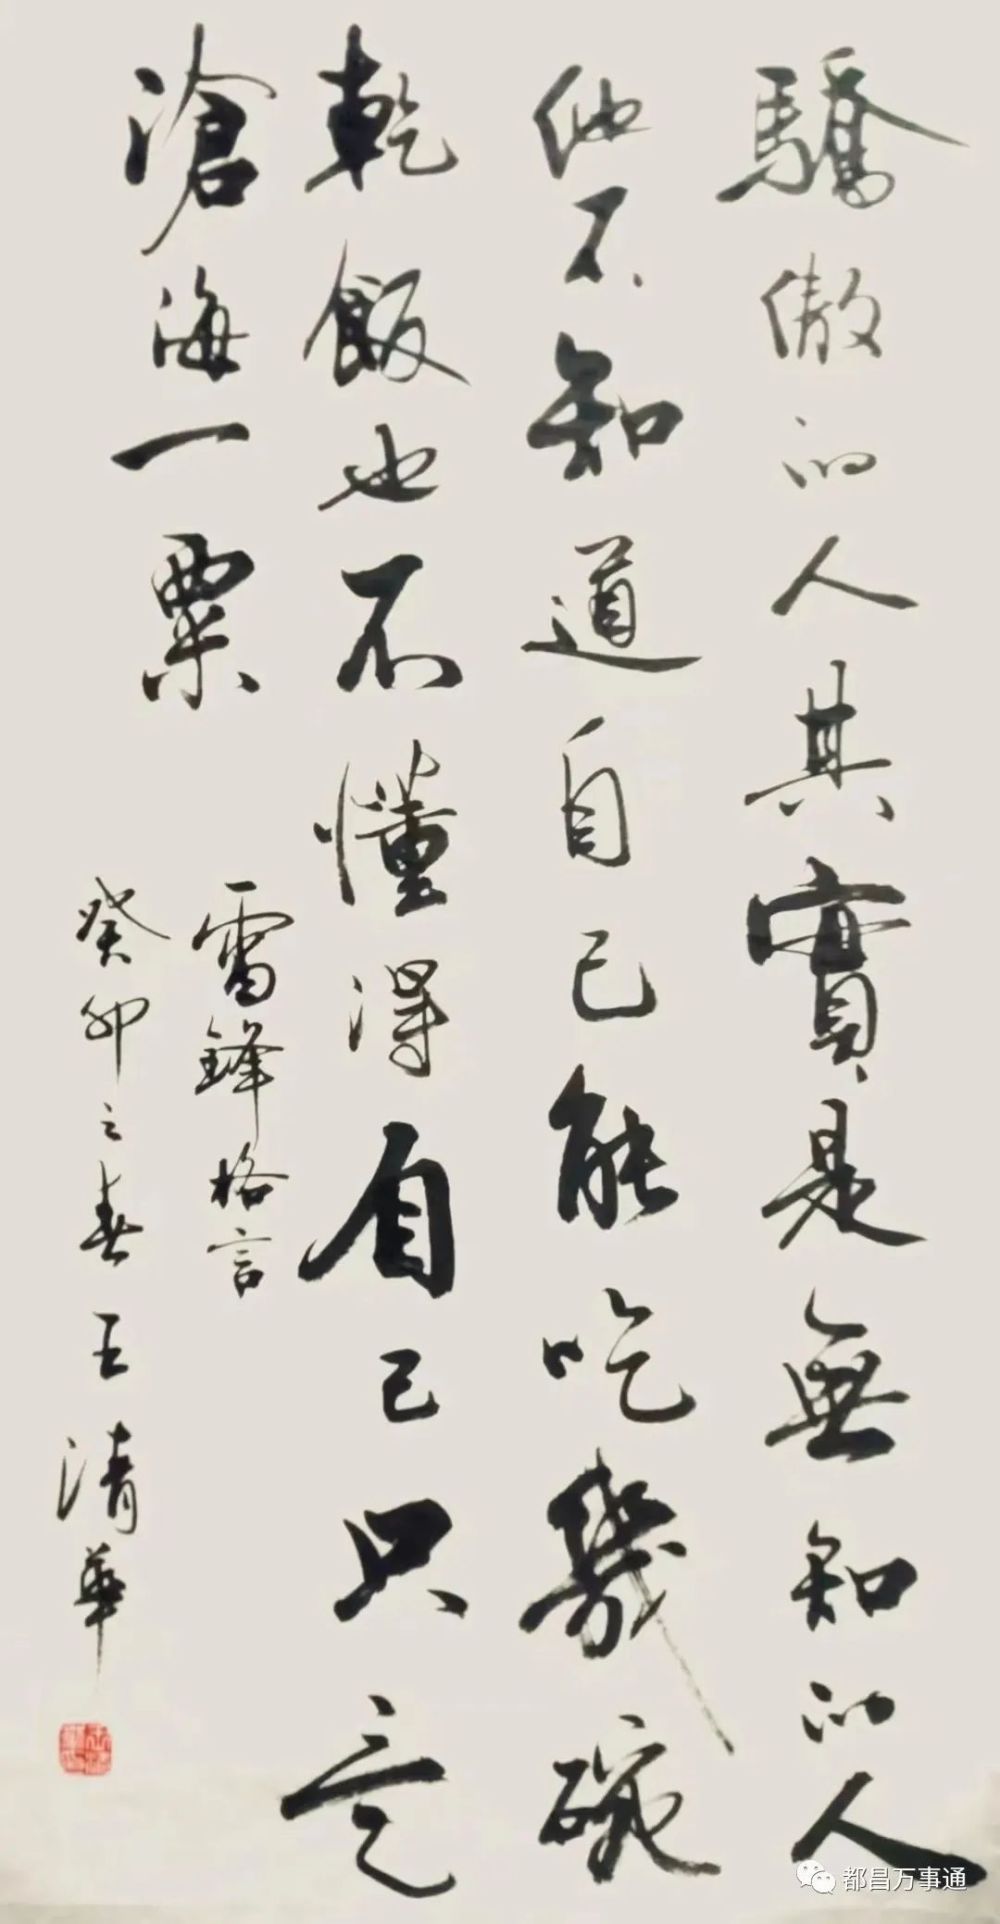 驕傲的人其實是無知的人
他不知道自己能吃幾碗
乾飯也不懂得自己只是
滄海一粟
雷鋒格言
癸卯之春王清華
都昌万事通